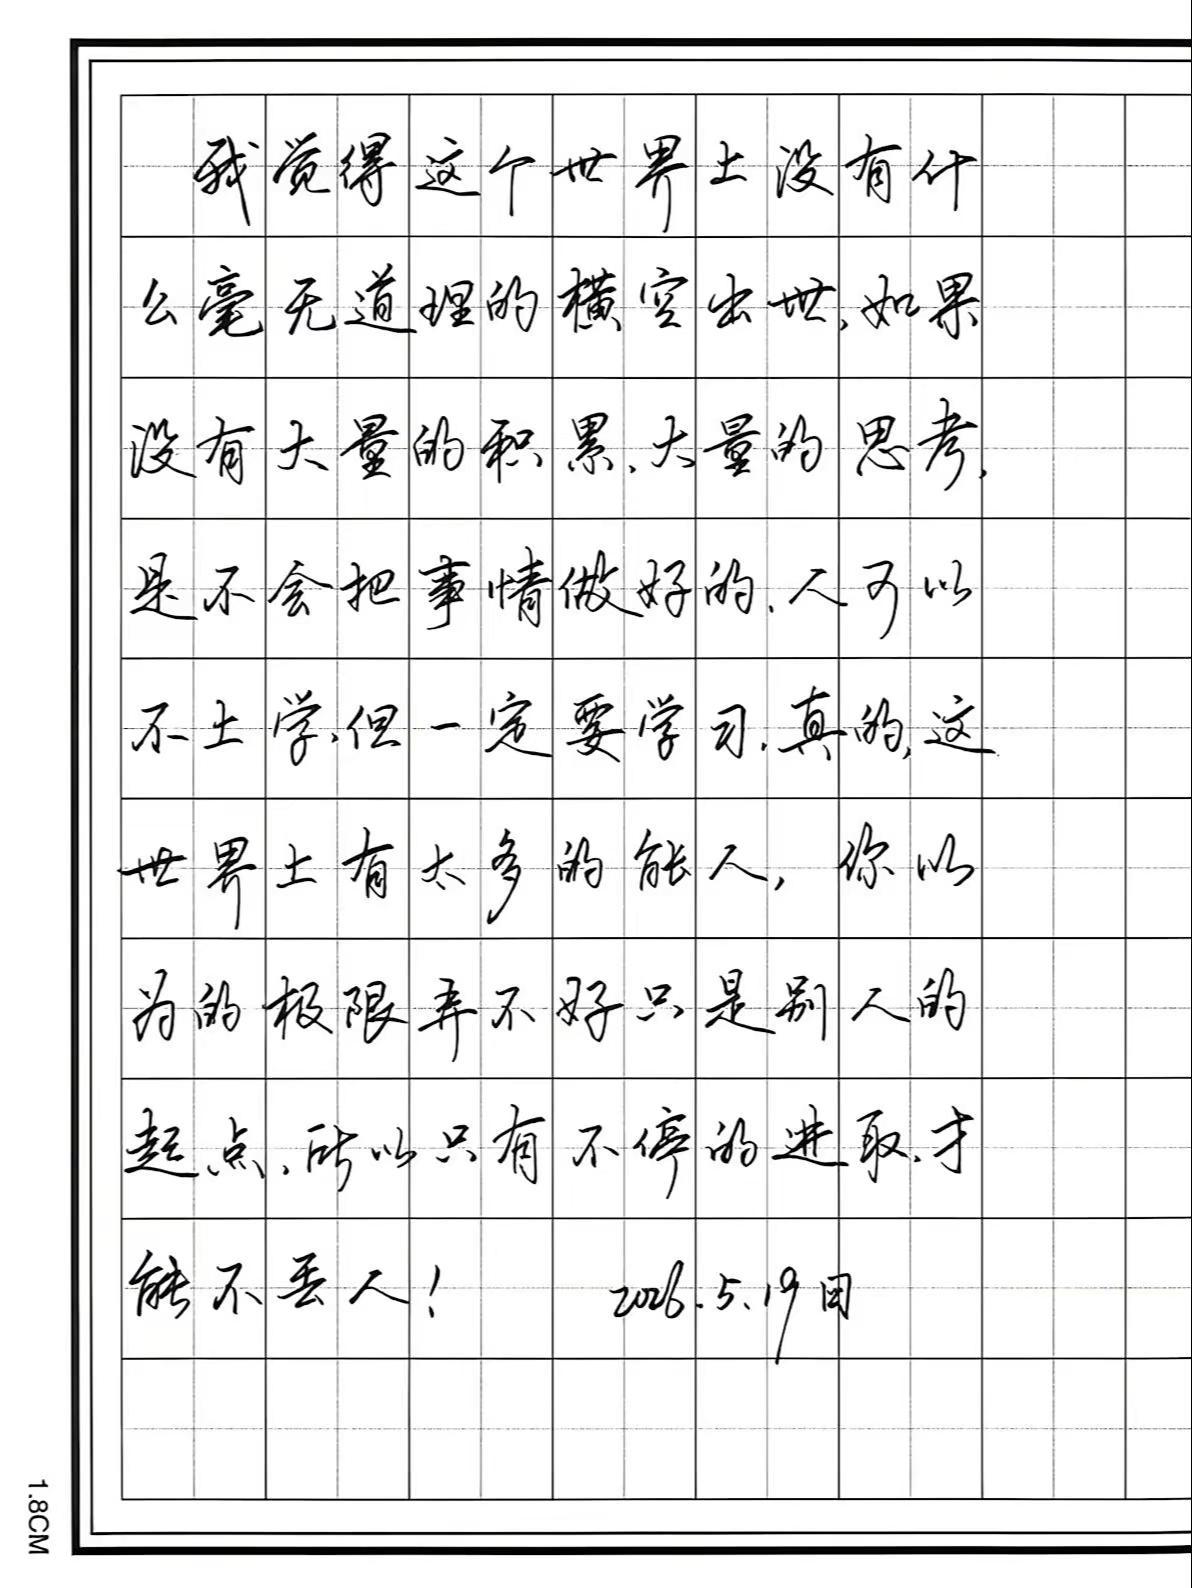 我觉得这个世界上没有什
么毫无道理的横空出世,如果
没有大量的积累、大量的思考,
是不会把事情做好的、人可以
不上学,但一定要学习.真的,这
世界上有太多的能人, 你以
为的极限弄不好只是别人的
起点,所以只有不停的进取.才
能不丢人!  2026.5.19日
1.8CM